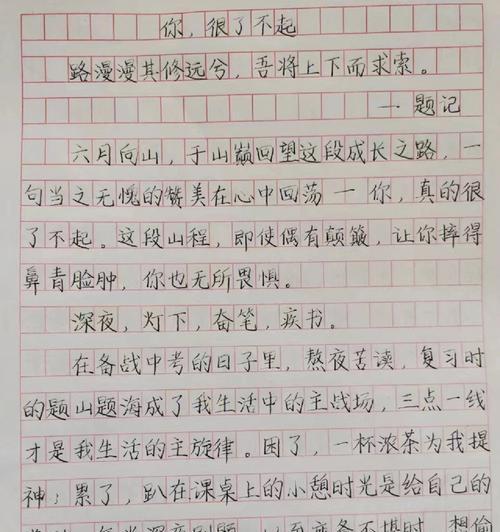 你，很了不起
路漫漫其修远兮，吾将上下而求索。
一题记
六月向山，于山巅回望这段成长之路，一
句当之无愧的赞美在心中回荡一你，真的很
了不起。这段山程，即使偶有颠簸，让你摔得
鼻青脸肿，你也无所畏惧。
深夜，灯下，奋笔，疾书。
在备战中考的日子里，熬夜苦读，复习时
的题山题海成了我生活中的主战场，三点一线
才是我生活的主旋律。困了，一杯浓茶为我提
神；累了，趴在课桌上的小憩时光是给自己的